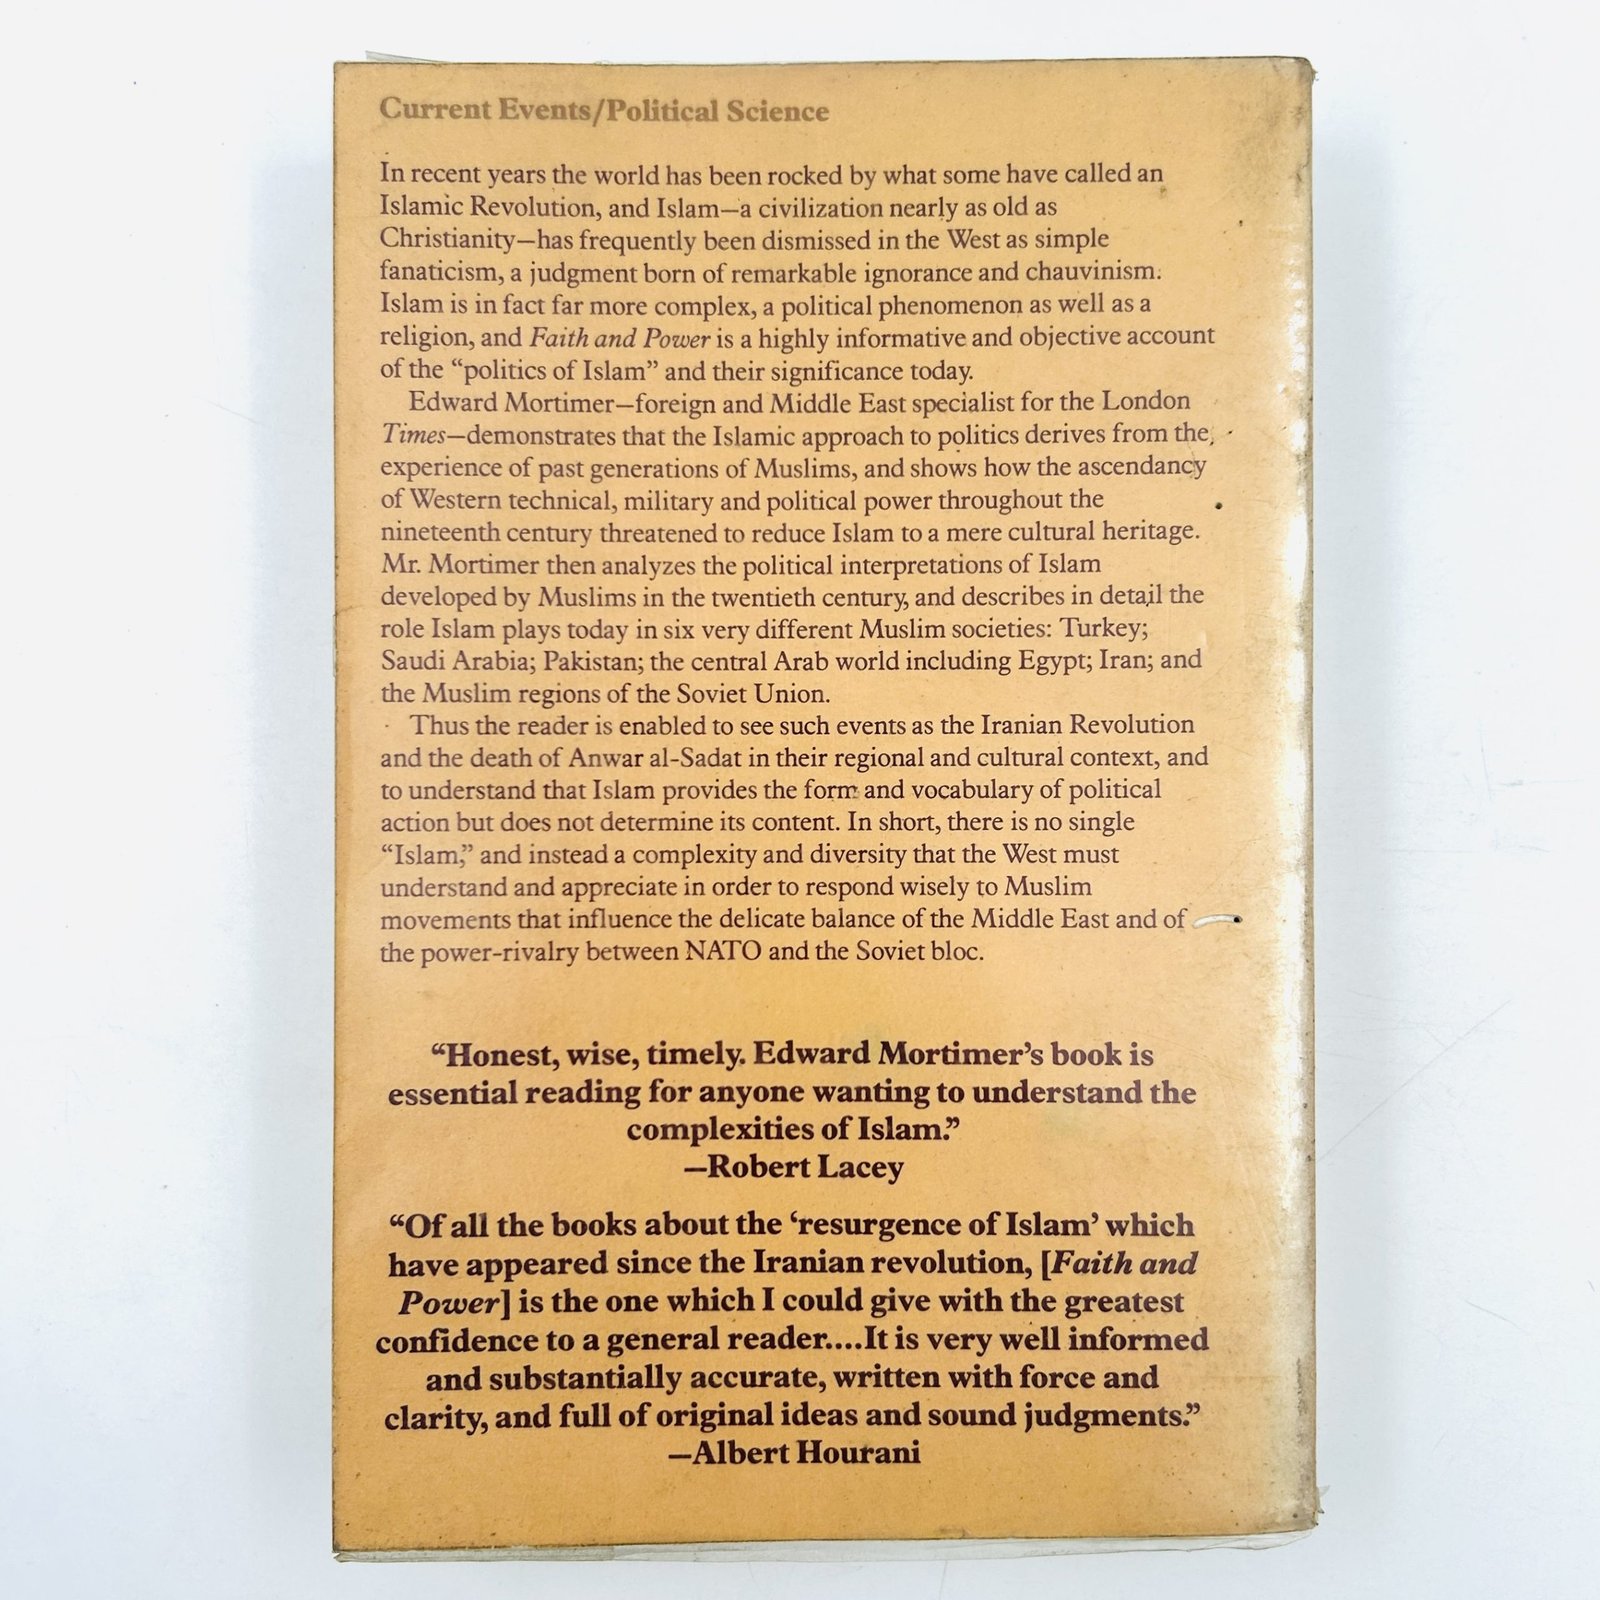 Current Events/Political Science
In recent years the world has been rocked by what some have called an
Islamic Revolution, and Islam—a civilization nearly as old as
Christianity—has frequently been dismissed in the West as simple
fanaticism, a judgment born of remarkable ignorance and chauvinism.
Islam is in fact far more complex, a political phenomenon as well as a
religion, and Faith and Power is a highly informative and objective account
of the “politics of Islam” and their significance today.
Edward Mortimer—foreign and Middle East specialist for the London
Times—demonstrates that the Islamic approach to politics derives from the
experience of past generations of Muslims, and shows how the ascendancy
of Western technical, military and political power throughout the
nineteenth century threatened to reduce Islam to a mere cultural heritage.
Mr. Mortimer then analyzes the political interpretations of Islam
developed by Muslims in the twentieth century, and describes in detail the
role Islam plays today in six very different Muslim societies: Turkey;
Saudi Arabia; Pakistan; the central Arab world including Egypt; Iran; and
the Muslim regions of the Soviet Union.
Thus the reader is enabled to see such events as the Iranian Revolution
and the death of Anwar al-Sadat in their regional and cultural context, and
to understand that Islam provides the form and vocabulary of political
action but does not determine its content. In short, there is no single
“Islam,” and instead a complexity and diversity that the West must
understand and appreciate in order to respond wisely to Muslim
movements that influence the delicate balance of the Middle East and of
the power-rivalry between NATO and the Soviet bloc.
“Honest, wise, timely. Edward Mortimer’s book is
essential reading for anyone wanting to understand the
complexities of Islam.”
—Robert Lacey
“Of all the books about the ‘resurgence of Islam’ which
have appeared since the Iranian revolution, [Faith and
Power] is the one which I could give with the greatest
confidence to a general reader....It is very well informed
and substantially accurate, written with force and
clarity, and full of original ideas and sound judgments.”
—Albert Hourani